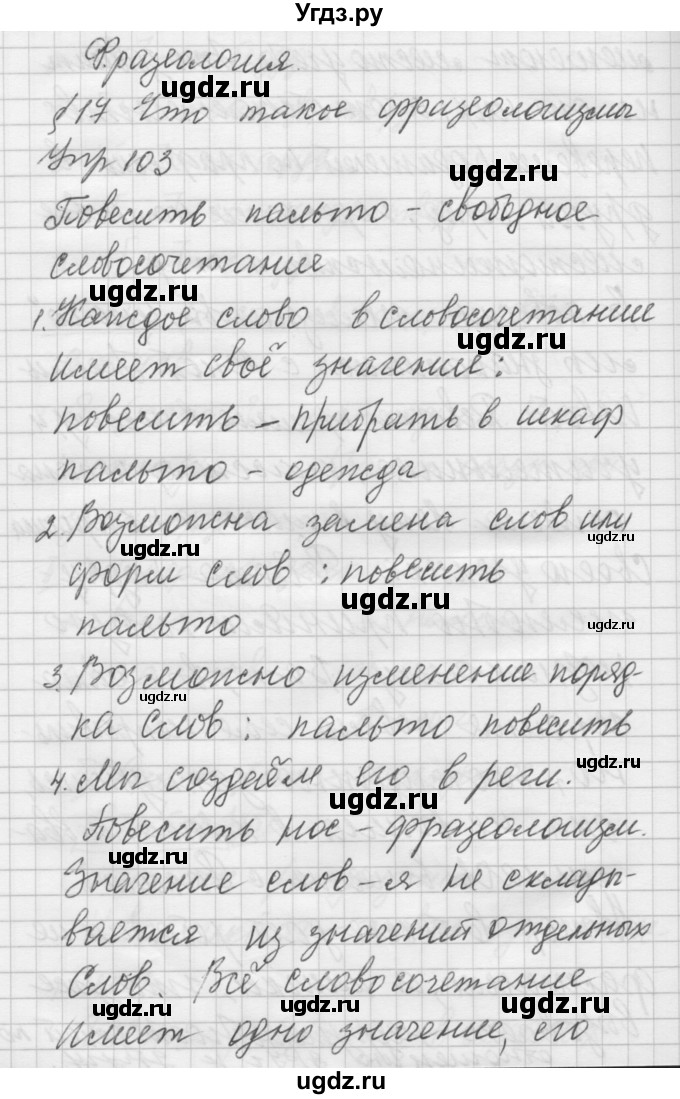 Угдз.ру
Фразеология.
ugdz.ru
§ 17 Что такое фразеологизмы
Упр 103
ugdz.ru
Повесить пальто – свободное
словосочетание
ugdz.ru
1. Каждое слово в словосочетании
ugdz.ru
имеет своё значение:
повесить – прибрать в шкаф
пальто – одежда
2. Возможна замена слов или
ugdz.ru
ugdz.ru
форм слов: повесить
ugdz.ru
пальто
ugdz.ru
3. Возможно изменение поряд-
ugdz.ru
ка слов: пальто повесить
4. Мы создаём его в речи.
ugdz.ru
ugdz.ru
Повесить нос – фразеологизм.
ugdz.ru
Значение слов-я не склады-
вается из значений отдельных
слов. Всё словосочетание
ugdz.ru
ugdz.ru
имеет одно значение, его
ugdz.ru